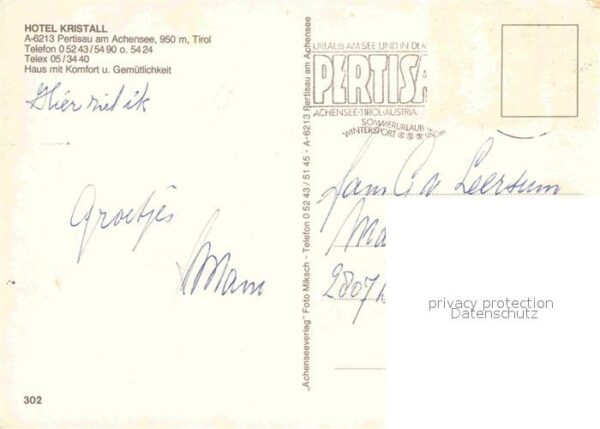 HOTEL KRISTALL
A-6213 Pertisau am Achensee, 950 m, Tirol
Telefon 0 52 43/54 90 o. 54 24
Telex 05/34 40
Haus mit Komfort u. Gemütlichkeit
Hier zit ik
Groetjes
Mam
302
„Achenseeverlag" Foto Miksch - Telefon 0 52 43 / 51 45 - A-6213 Pertisau am Achensee
URLAUB AM SEE UND IN DER
PERTISA
ACHENSEE-TIROL-AUSTRIA
SOMMERURLAUB
WINTERSPORT
Leersum
Ma
2807
privacy protection
Datenschutz